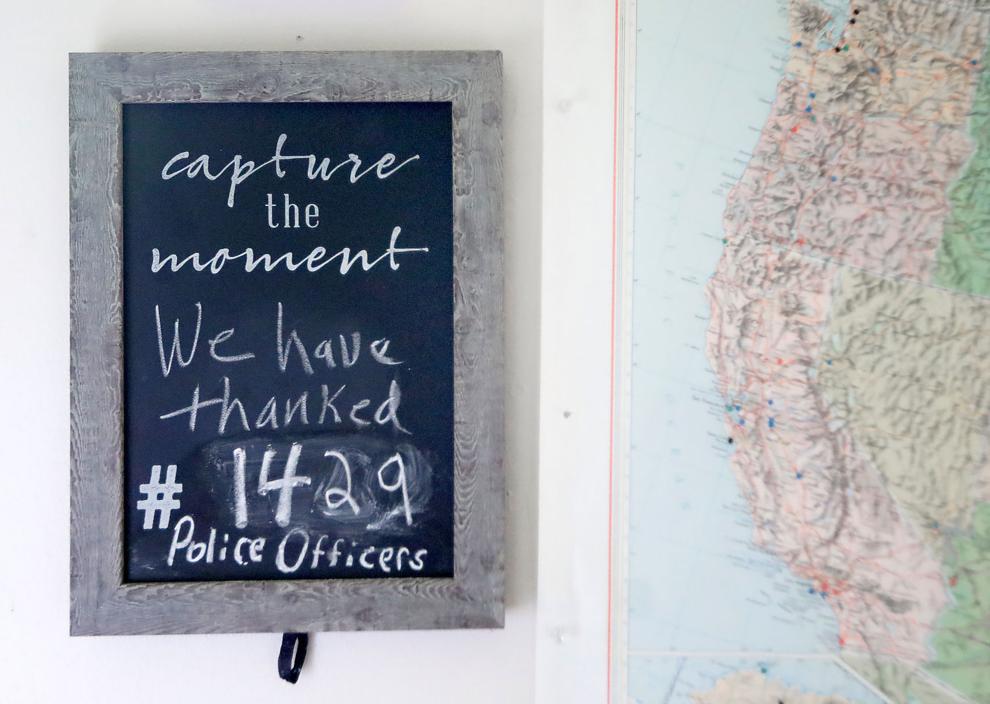 capture
the
moment
We have
thanked
# 1429
Police Officers